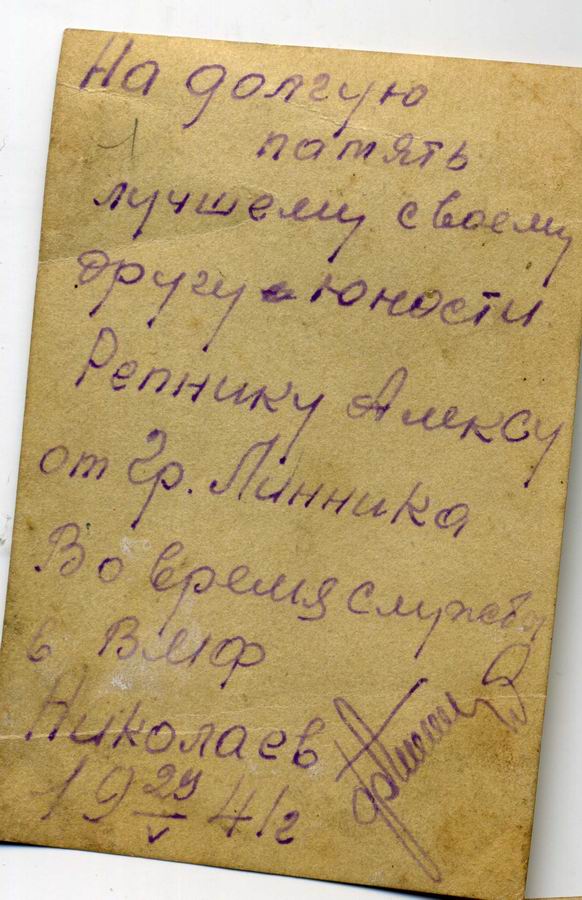 На долгую
память
лучшему своему
другу юности
Репнику Алексу
от Гр. Линника
Во время службы
в ВМФ
Николаев
19 29/V 41г